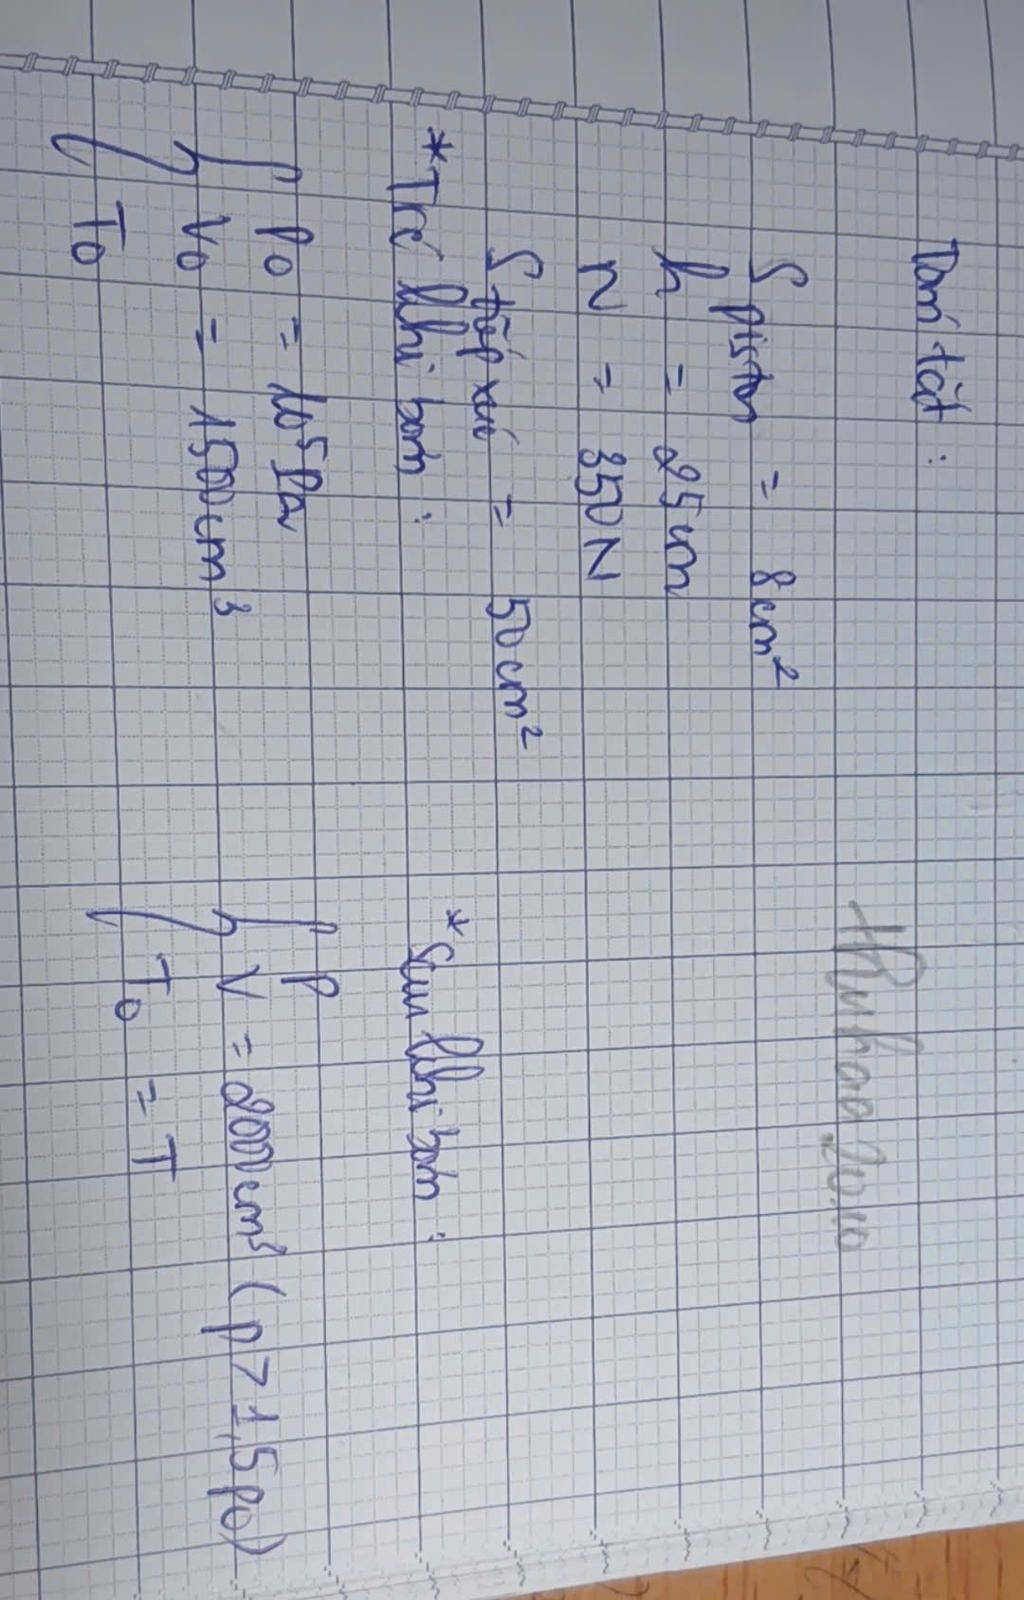 Tóm tắt :
S piston = 8cm²
h = 25cm
N = 350N
S tiếp xúc = 50cm²
*Trc khi bơm :
p0 = 10⁵Pa
V0 = 1500cm³
T0
*Sau khi bơm :
p
V = 2000cm³ (p > 1,5p0)
T0 = T
20.10